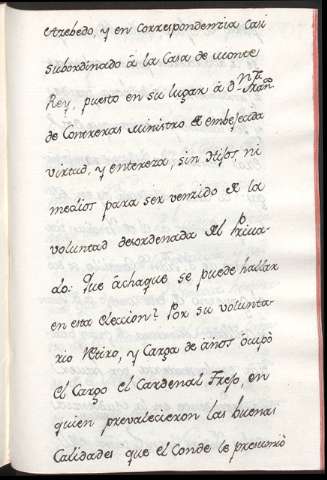 Atrebedo, y en correspondenzia casi
subordinado â la Casa de monte
Rey, puesto en su lugar â Dn
de Contreras Ministro de embejecida
virtud, y entereza, sin Hijos, ni
medios para ser venzido de la
voluntad desordenada del Priva-
do: Que âchaque se puede hallar
en esta eleccion? Por su volunta-
rio Retiro, y Carga de años ôcupò
el Cargo el Cardenal Trejo, en
quien prevalecieron las buenas
Calidades que el Conde le presumiò